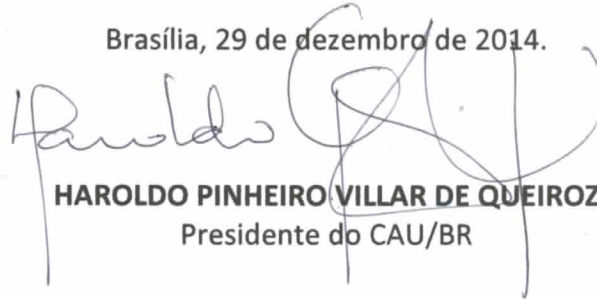 Brasília, 29 de dezembro de 2014.
Haroldo
HAROLDO PINHEIRO VILLAR DE QUEIROZ
Presidente do CAU/BR